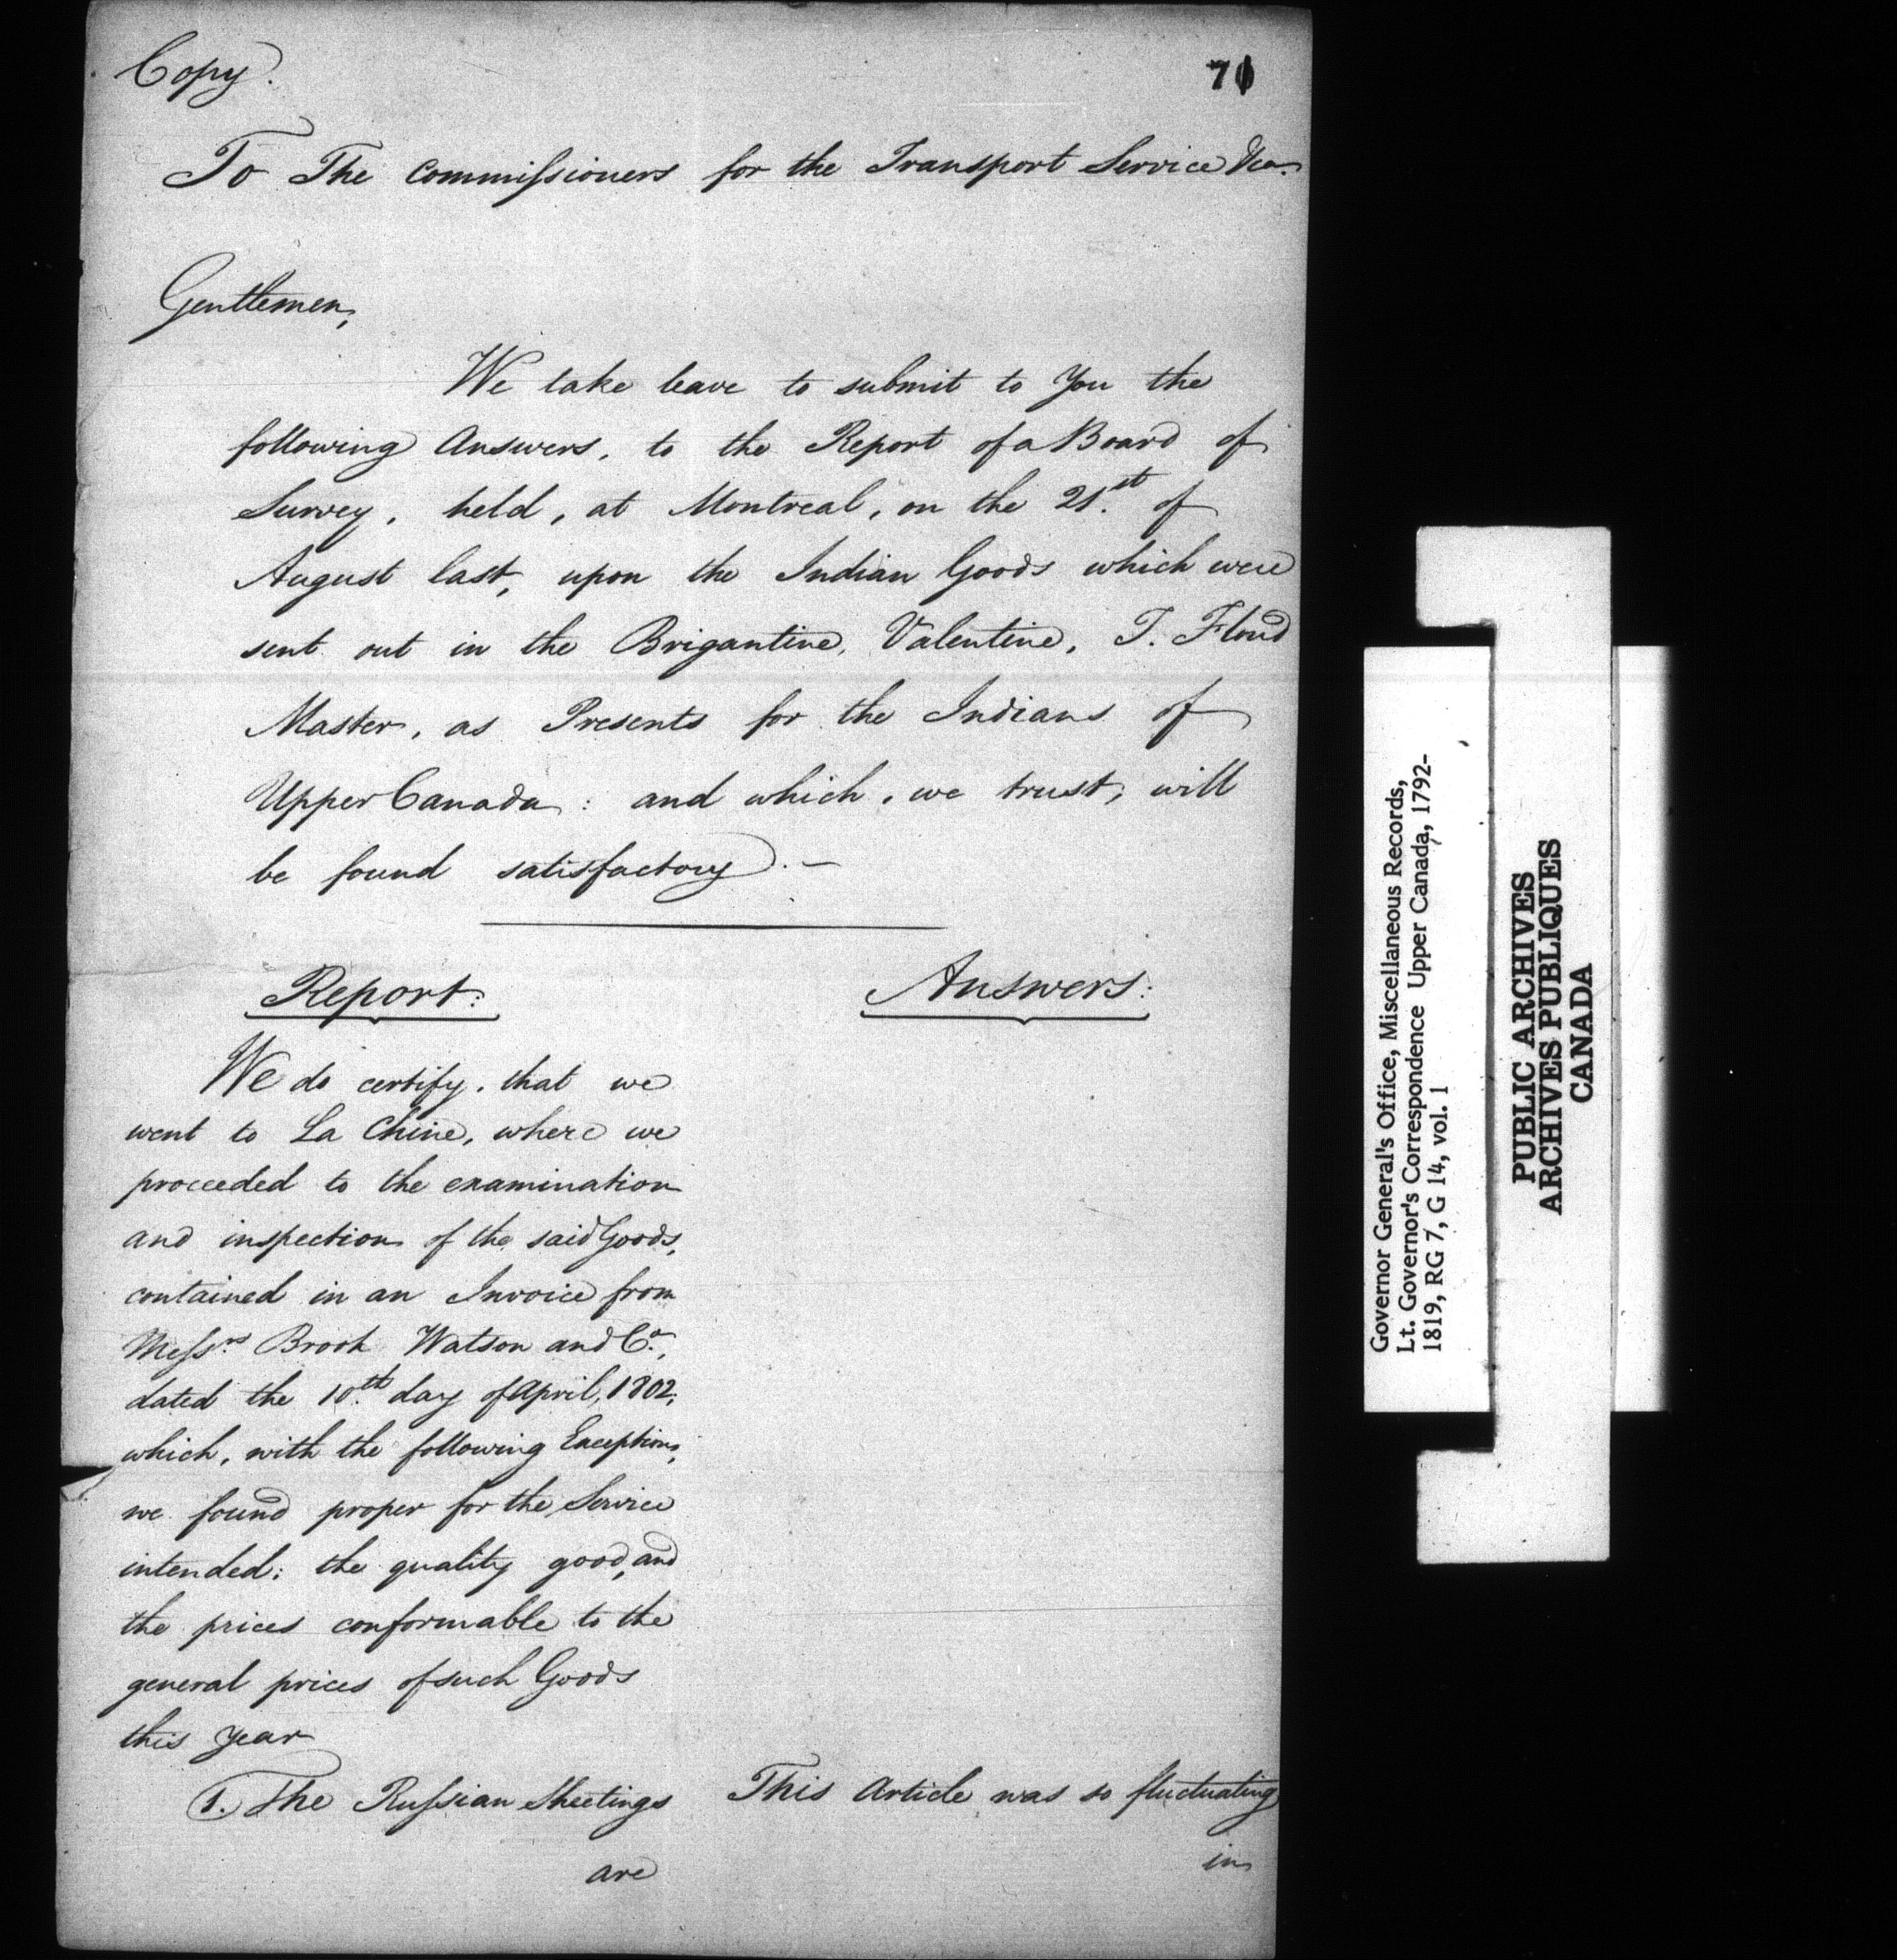 Copy.
71
To The Commissioners for the Transport Service &ca.
Gentlemen,
We take leave to submit to You the
following Answers, to the Report of a Board of
Survey, held, at Montreal, on the 21.st of
August last, upon the Indian Goods which were
sent out in the Brigantine, Valentine, T. Floud
Master, as Presents for the Indians of
Upper Canada: and which, we trust, will
be found satisfactory. –
Report:
We do certify, that we
went to La Chine, where we
proceeded to the examination
and inspection of the said Goods,
contained in an Invoice from
Messrs. Brook Watson and Co.,
dated the 10.th day of April, 1802,
which, with the following Exceptions,
we found proper for the Service
intended: the quality good, and
the prices conformable to the
general prices of such Goods
this year
1. The Russian Sheetings
are
Answers:
This Article was so fluctuating
in
Governor General's Office, Miscellaneous Records,
Lt. Governor's Correspondence Upper Canada, 1792-
1819, RG 7, G 14, vol. 1
PUBLIC ARCHIVES
ARCHIVES PUBLIQUES
CANADA